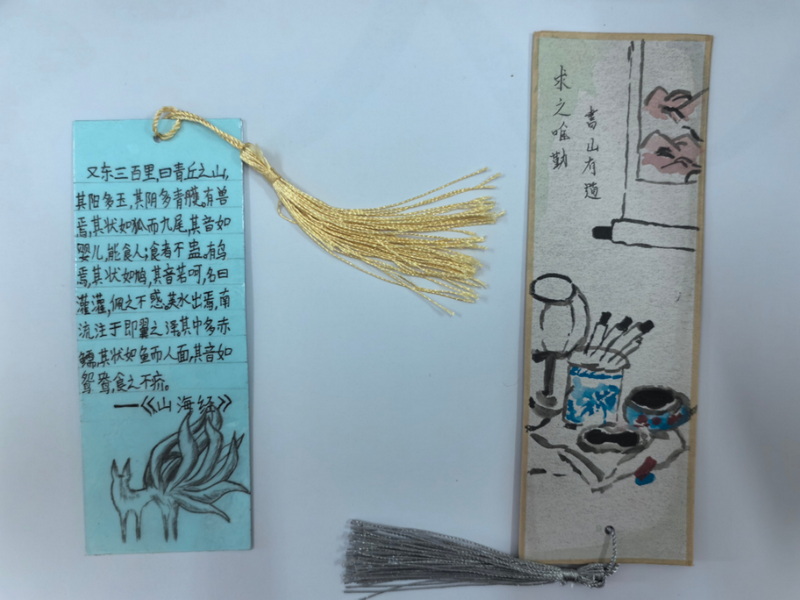 又东三百里曰青丘之山,
其阳多玉,其阴多青䨼.有兽
焉,其状如狐而九尾,其音如
婴儿,能食人;食者不蛊.有鸟
焉,其状如鸠,其音若呵,名曰
灌灌,佩之不惑.英水出焉,南
流注于即翼之泽.其中多赤
鱬,其状如鱼而人面,其音如
鸳鸯,食之不疥。
—《山海经》
書山有道
求之唯勤